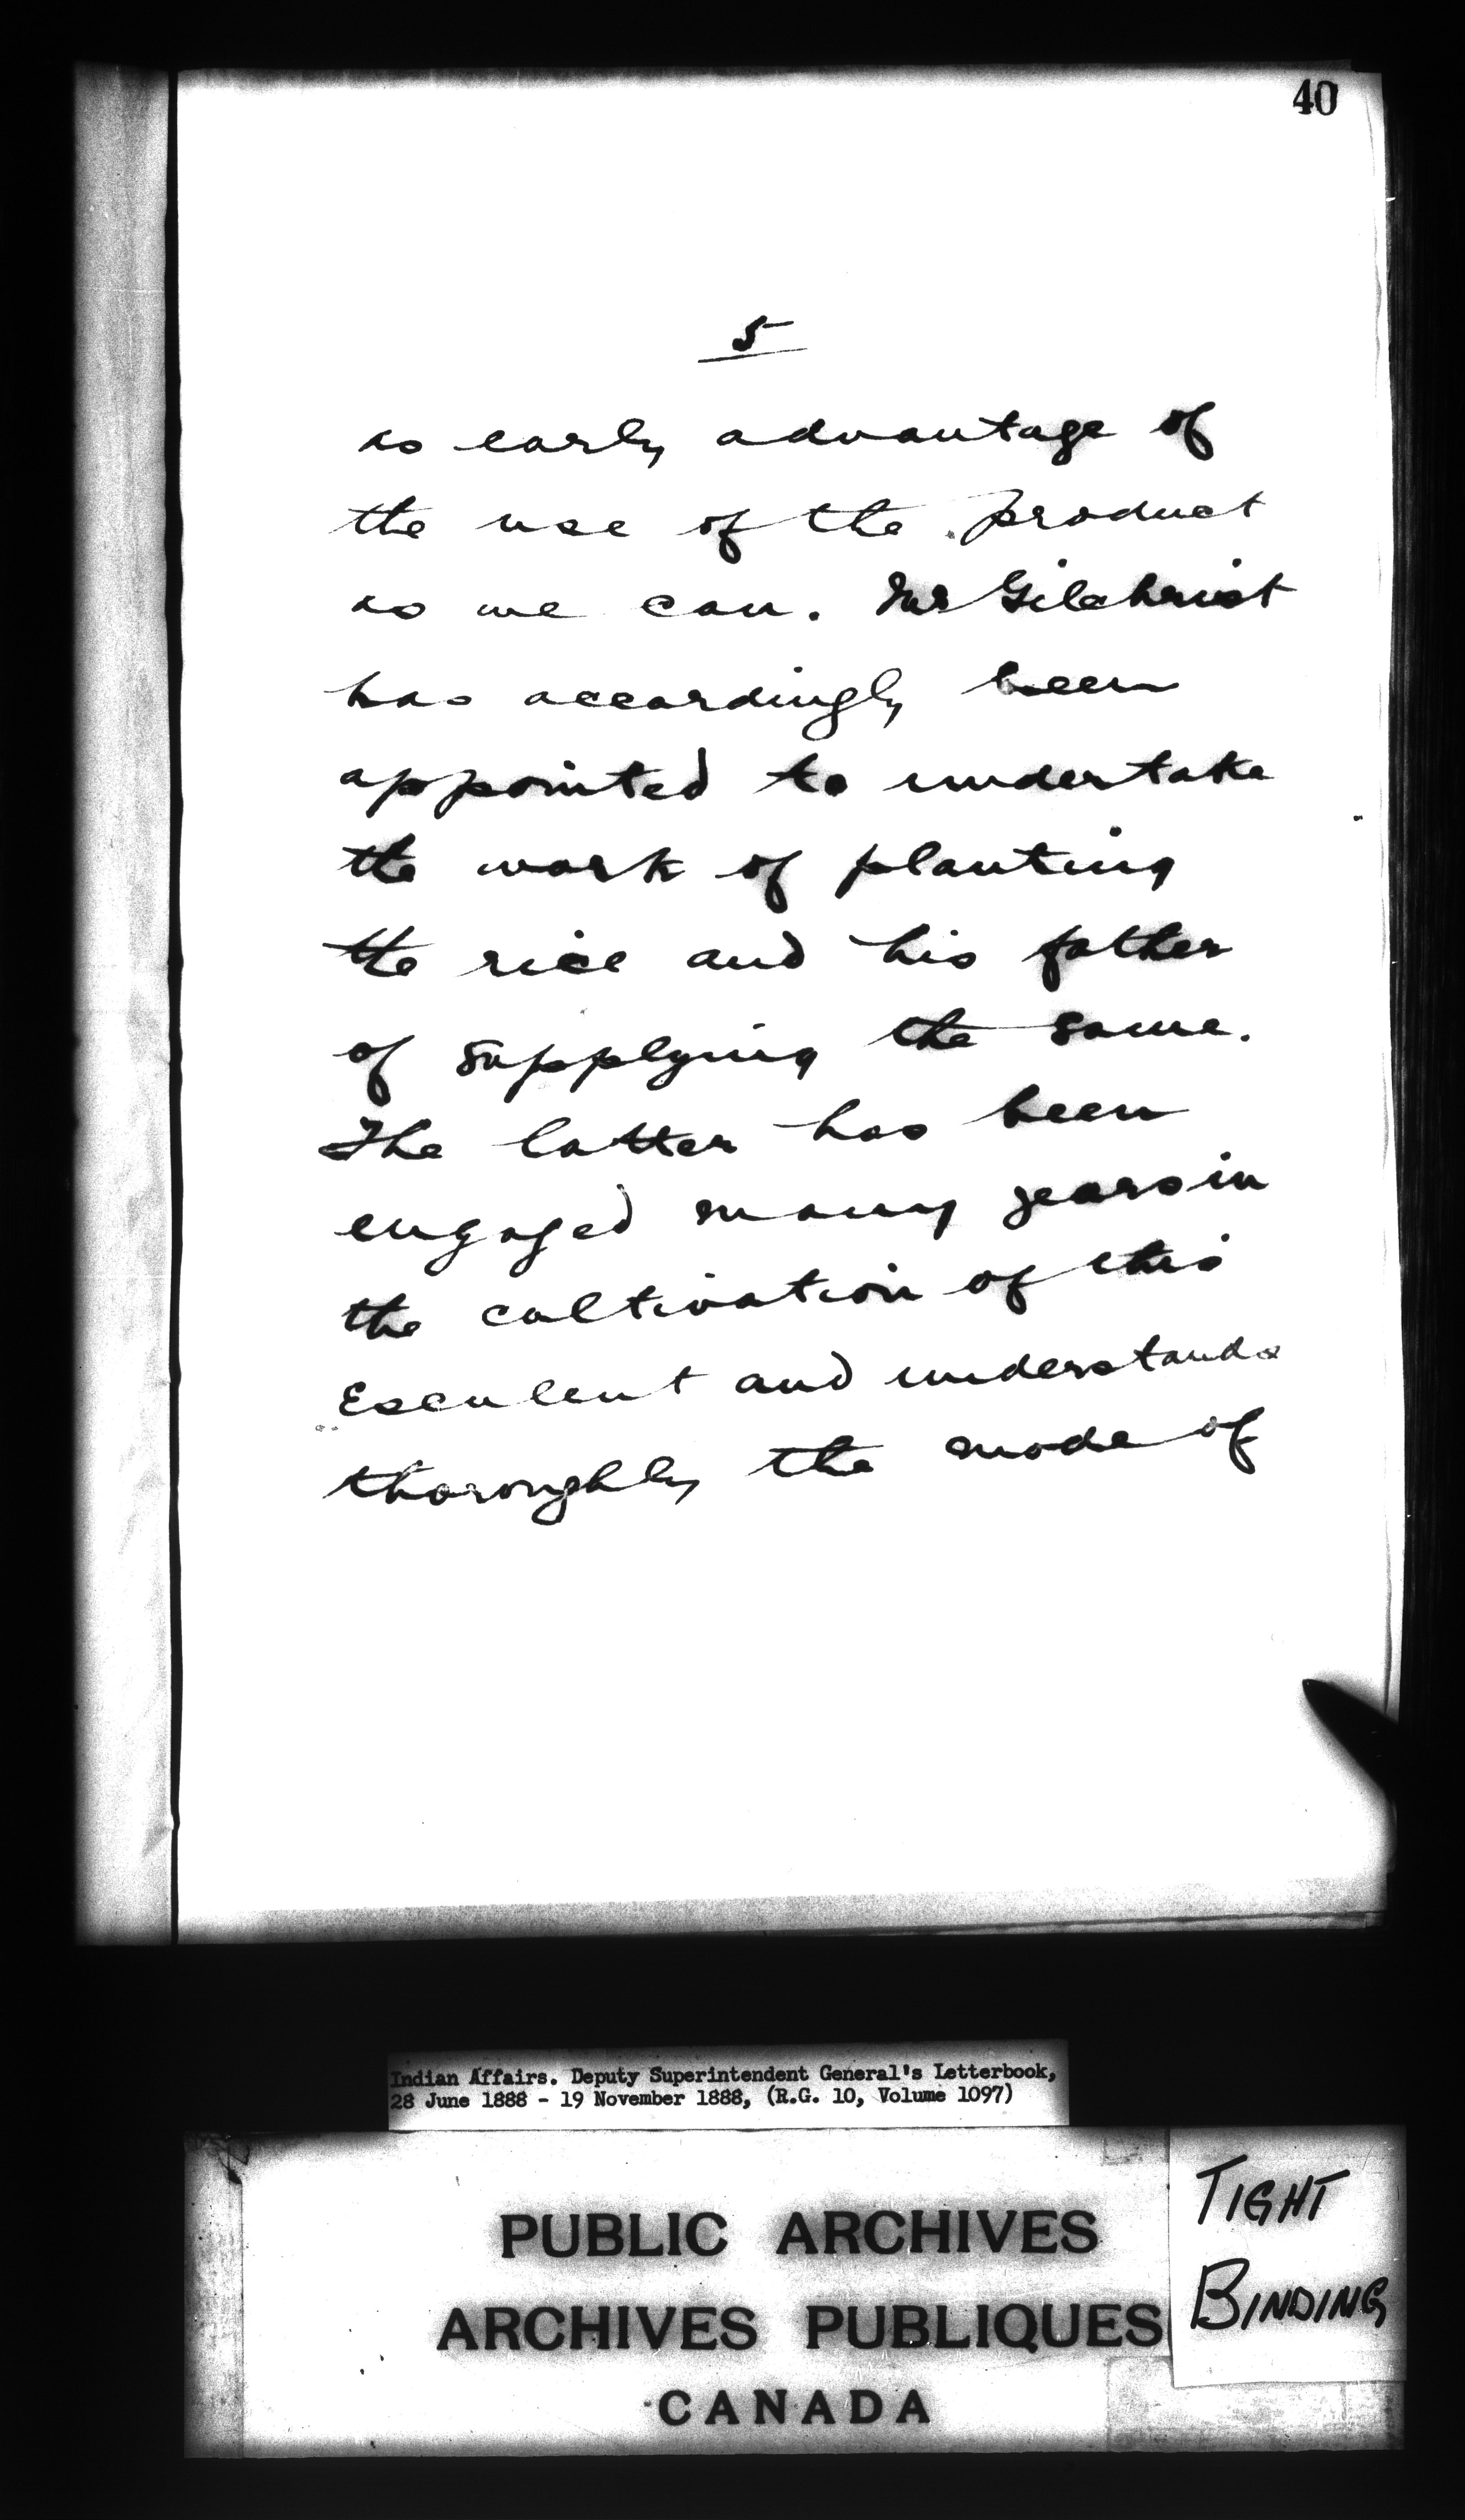 40
5
as early advantage of
the use of the product
as we can. Mr Gilchrist
has accordingly been
appointed to undertake
the work of planting
the rice and his father
of supplying the same.
The latter has been
engaged many years in
the cultivation of this
Esculent and understands
thoroughly the mode of
Indian Affairs. Deputy Superintendent General's Letterbook,
28 June 1888 - 19 November 1888, (R.G. 10, Volume 1097)
PUBLIC ARCHIVES
ARCHIVES PUBLIQUES
CANADA
TIGHT
BINDING